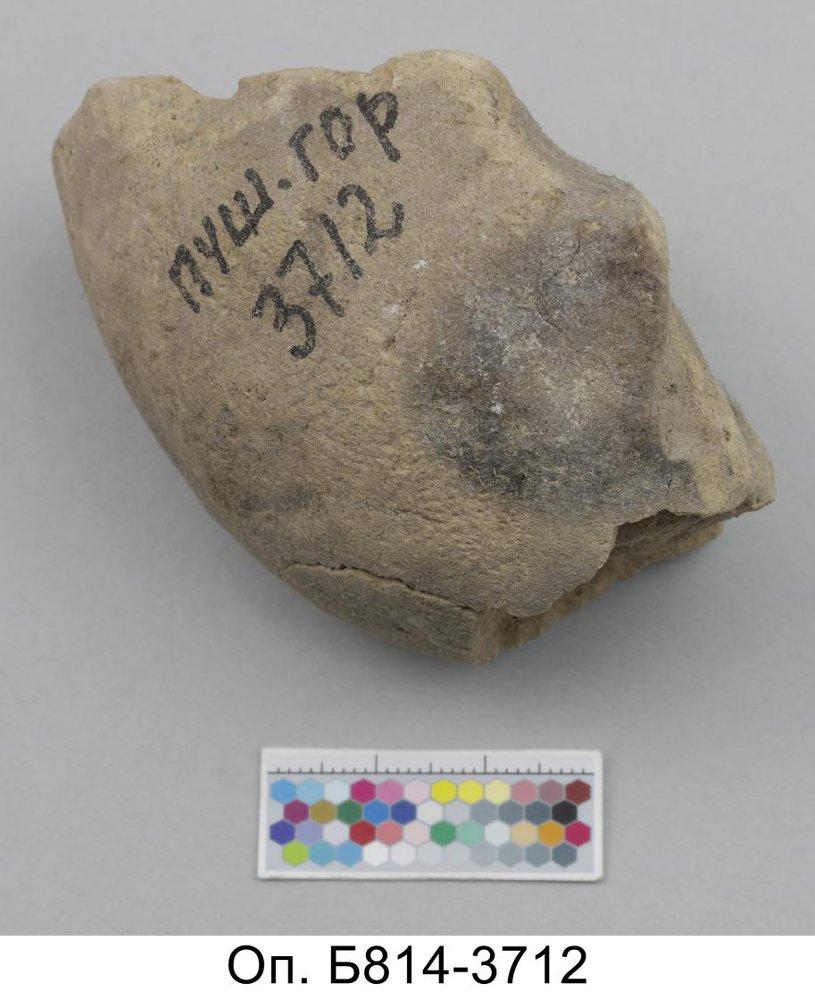 пуш.гор
3712
Оп. Б814-3712